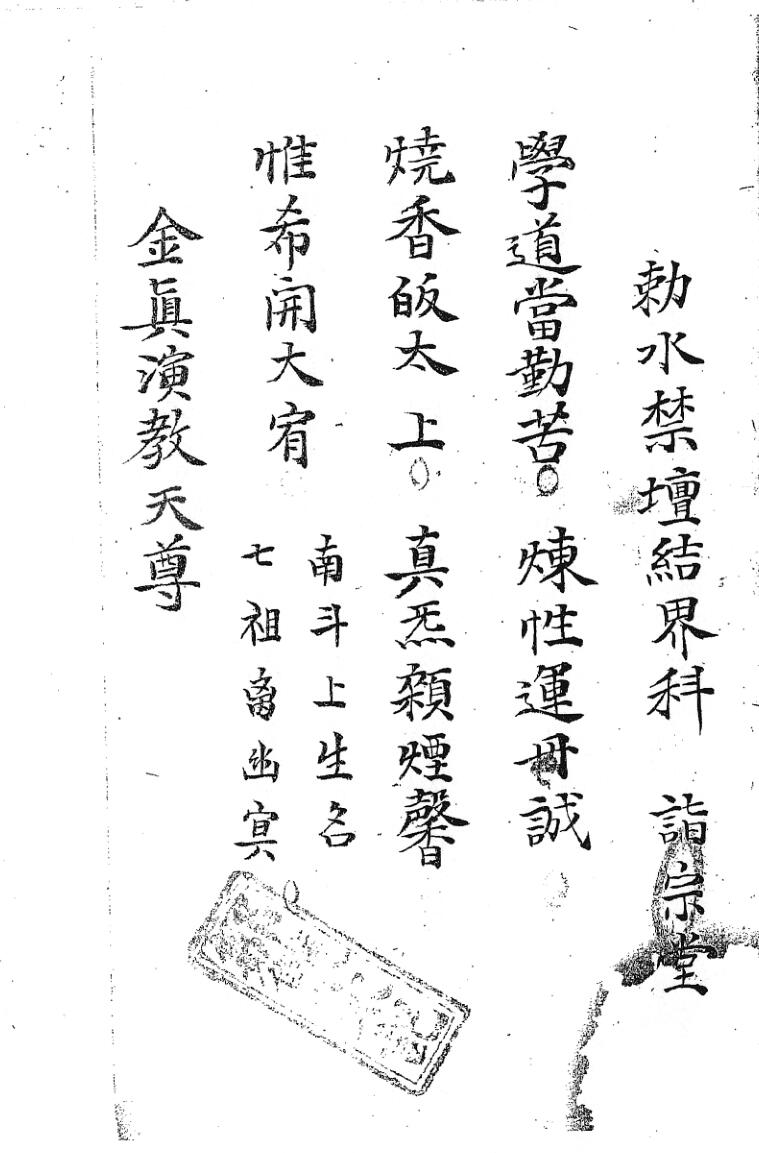 勅水禁壇結界科　詣宗堂
學道當勤苦。煉性運丹誠
燒香皈太上。真炁雜煙馨
惟希開大宥
南斗上生名
七祖离幽冥
金眞演教天尊